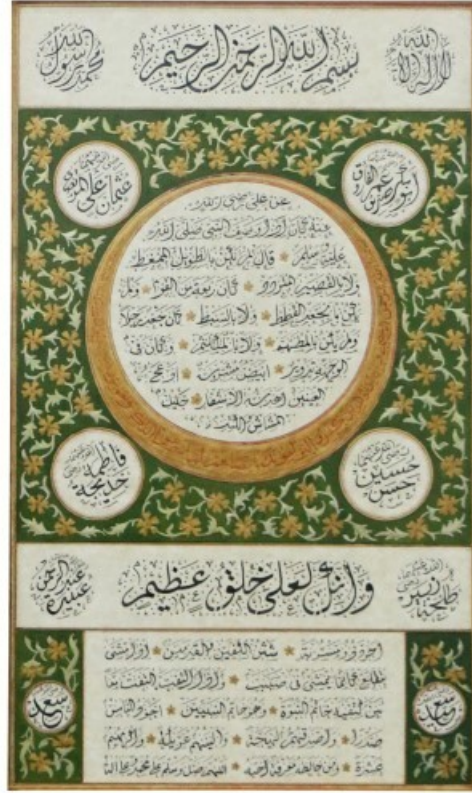 لا إله إلا الله
بسم الله الرحمن الرحيم
محمد رسول الله
أبو بكر عمر الفاروق
عثمان علي المرتضى
عن علي رضي الله
عنه كان إذا وصف النبي صلى الله
عليه وسلم قال لم يكن بالطويل الممغط
ولا بالقصير المتردد كان ربعة من القوم ولم
يكن بالجعد القطط ولا بالسبط كان جعدا رجلا
ولم يكن بالمطهم ولا بالمكلثم وكان في
الوجه تدوير أبيض مشرب أدعج
العينين أهدب الأشفار جليل
المشاش
حسين حسن
فاطمة خديجة
طلحة زبير
وإنك لعلى خلق عظيم
عبد الرحمن عبيدة
أجرد ذو مسربة شثن الكفين والقدمين إذا مشى
تقلع كأنما يمشي في صبب وإذا التفت التفت معا
بين كتفيه خاتم النبوة وهو خاتم النبيين أجود الناس
صدرا وأصدقهم لهجة وألينهم عريكة وأكرمهم
عشرة ومن خالطه معرفة أحبه اللهم صل وسلم على محمد
سعيد
سعد